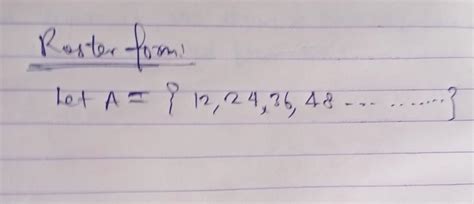 Roster form:
Let A = { 12, 24, 36, 48 --- ........}